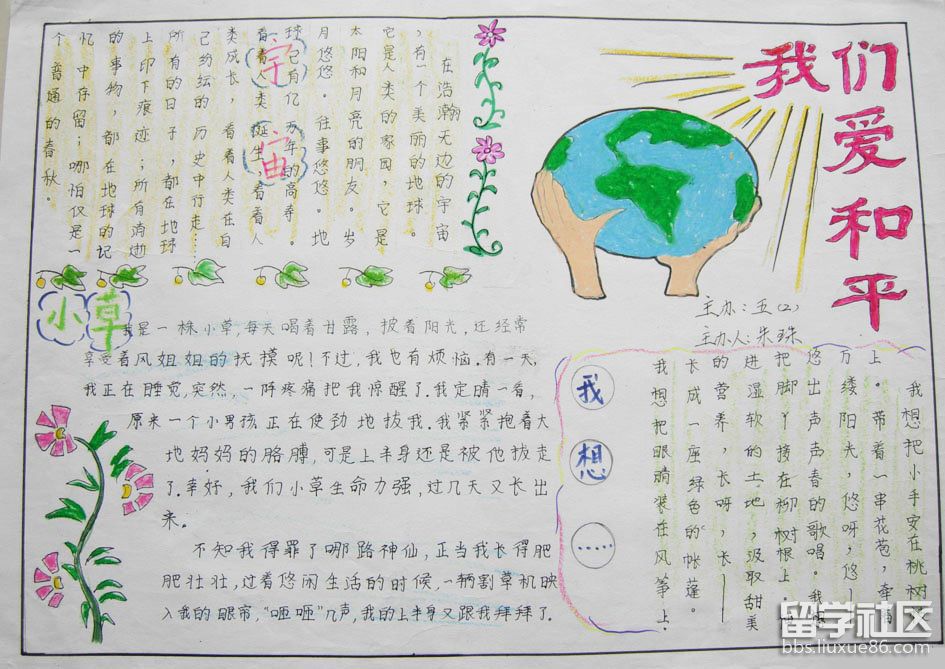 我们爱和平
主办:五(2)
主办人:朱珠
宇宙
在浩瀚无边的宇宙
,有一个美丽的地球。
它是人类的家园,它是
太阳和月亮的朋友。岁
月悠悠。往事悠悠。地
球已有亿万年的高寿。
看着人类诞生,看着人
类成长,看着人类在自
己纷纭的历史中行走…
所有的日子,都在地球
上印下痕迹;所有消逝
的事物,都在地球的记
忆中存留;哪怕仅是一
个普通的春秋。
小草
我是一株小草,每天喝着甘露,披着阳光,还经常
享受着风姐姐的抚摸呢!不过,我也有烦恼.有一天,
我正在睡觉,突然,一阵疼痛把我惊醒了.我定睛一看,
原来一个小男孩正在使劲地拔我.我紧紧抱着大
地妈妈的胳膊,可是上半身还是被他拔走
了.幸好,我们小草生命力强,过几天又长出
来.
不知我得罪了哪路神仙,正当我长得肥
肥壮壮,过着悠闲生活的时候,一辆割草机映
入我的眼帘,"咂咂"几声,我的上半身又跟我拜拜了.
我想……
我想把小手安在桃树
上。带着一串花苞,牵着
万缕阳光,悠呀,悠—
悠出声声春的歌唱。我想
把脚丫接在柳树根上.
进湿软的土地,汲取甜美
的营养,长呀,长——
长成一座绿色的帐篷。
我想把眼睛装在风筝上.
留学社区
bbs.liuxue86.com